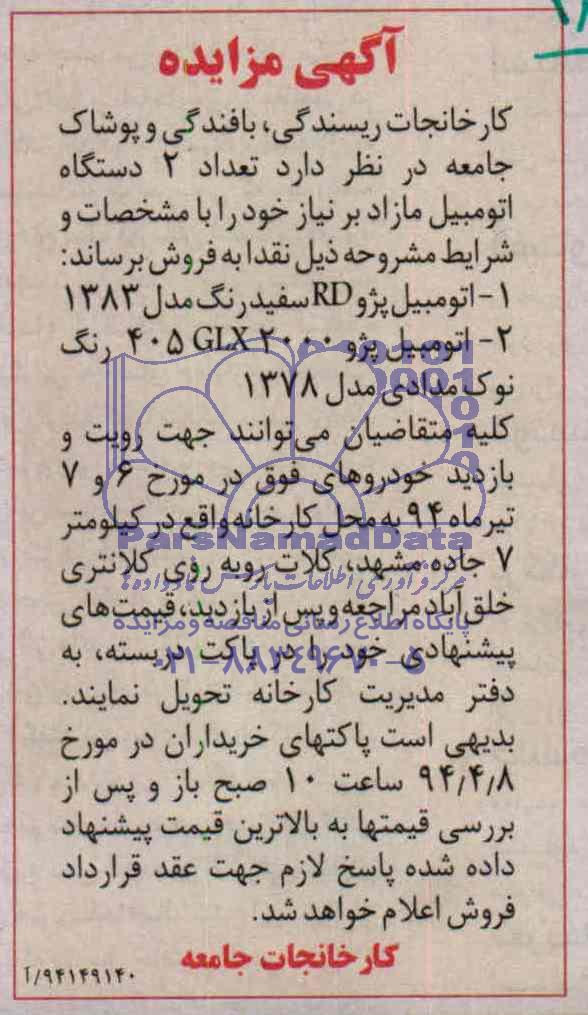 آگهی مزایده
کارخانجات ریسندگی، بافندگی و پوشاک
جامعه در نظر دارد تعداد ۲ دستگاه
اتومبیل مازاد بر نیاز خود را با مشخصات و
شرایط مشروحه ذیل نقدا به فروش برساند:
۱- اتومبیل پژو RD سفید رنگ مدل ۱۳۸۳
۲- اتومبیل پژو ۴۰۵ GLX ۲۰۰۰ رنگ
نوک مدادی مدل ۱۳۷۸
کلیه متقاضیان می‌توانند جهت رویت و
بازدید خودروهای فوق در مورخ ۶ و ۷
تیرماه ۹۴ به محل کارخانه واقع در کیلومتر
ParsNamadData
۷ جاده مشهد، کلات روبه روی کلانتری
مرکز فرآوری اطلاعات پارس نماد داده‌ها
خلق‌آباد مراجعه و پس از بازدید، قیمت‌های
پایگاه اطلاع رسانی مناقصه و مزایده
پیشنهادی خود را در پاکت دربسته، به
۰۲۱-۸۸۳۴۹۶۷۰-۵
دفتر مدیریت کارخانه تحویل نمایند.
بدیهی است پاکتهای خریداران در مورخ
۹۴/۴/۸ ساعت ۱۰ صبح باز و پس از
بررسی قیمتها به بالاترین قیمت پیشنهاد
داده شده پاسخ لازم جهت عقد قرارداد
فروش اعلام خواهد شد.
کارخانجات جامعه
۹۴۱۴۹۱۴۰/آ